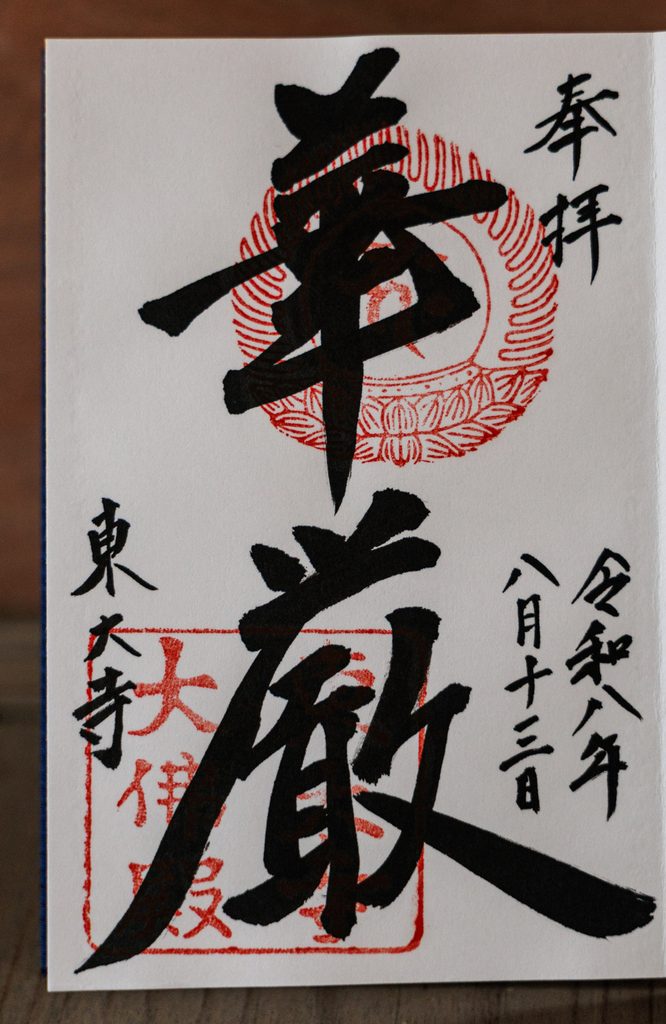 奉拝
令和八年
八月十三日
華厳
東大寺
大佛殿